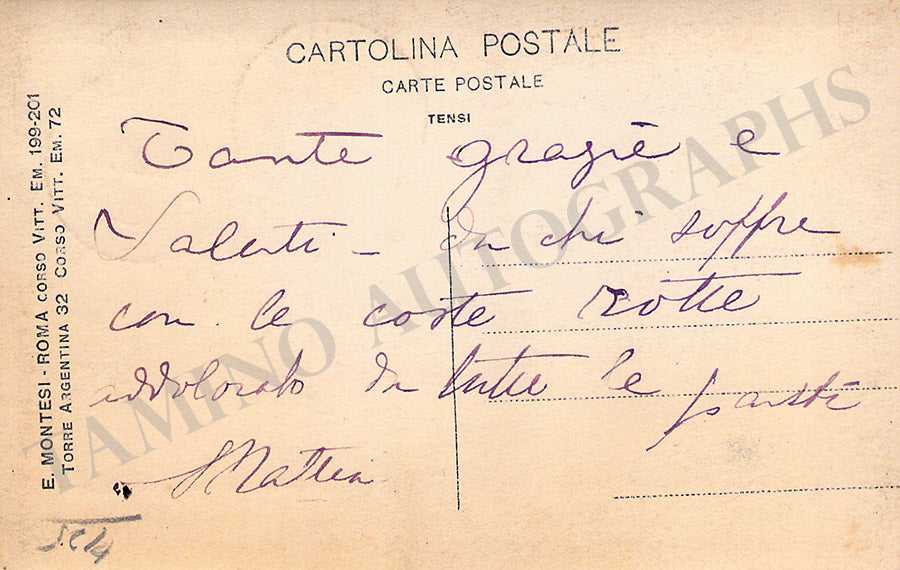 CARTOLINA POSTALE
CARTE POSTALE
TENSI
E. MONTESI - ROMA CORSO VITT. EM. 199-201
TORRE ARGENTINA 32 CORSO VITT. EM. 72
Tante grazie e
Saluti - da chi soffre
con le coste rotte
addolorato da tutte le parti
TAMINO AUTOGRAPHS